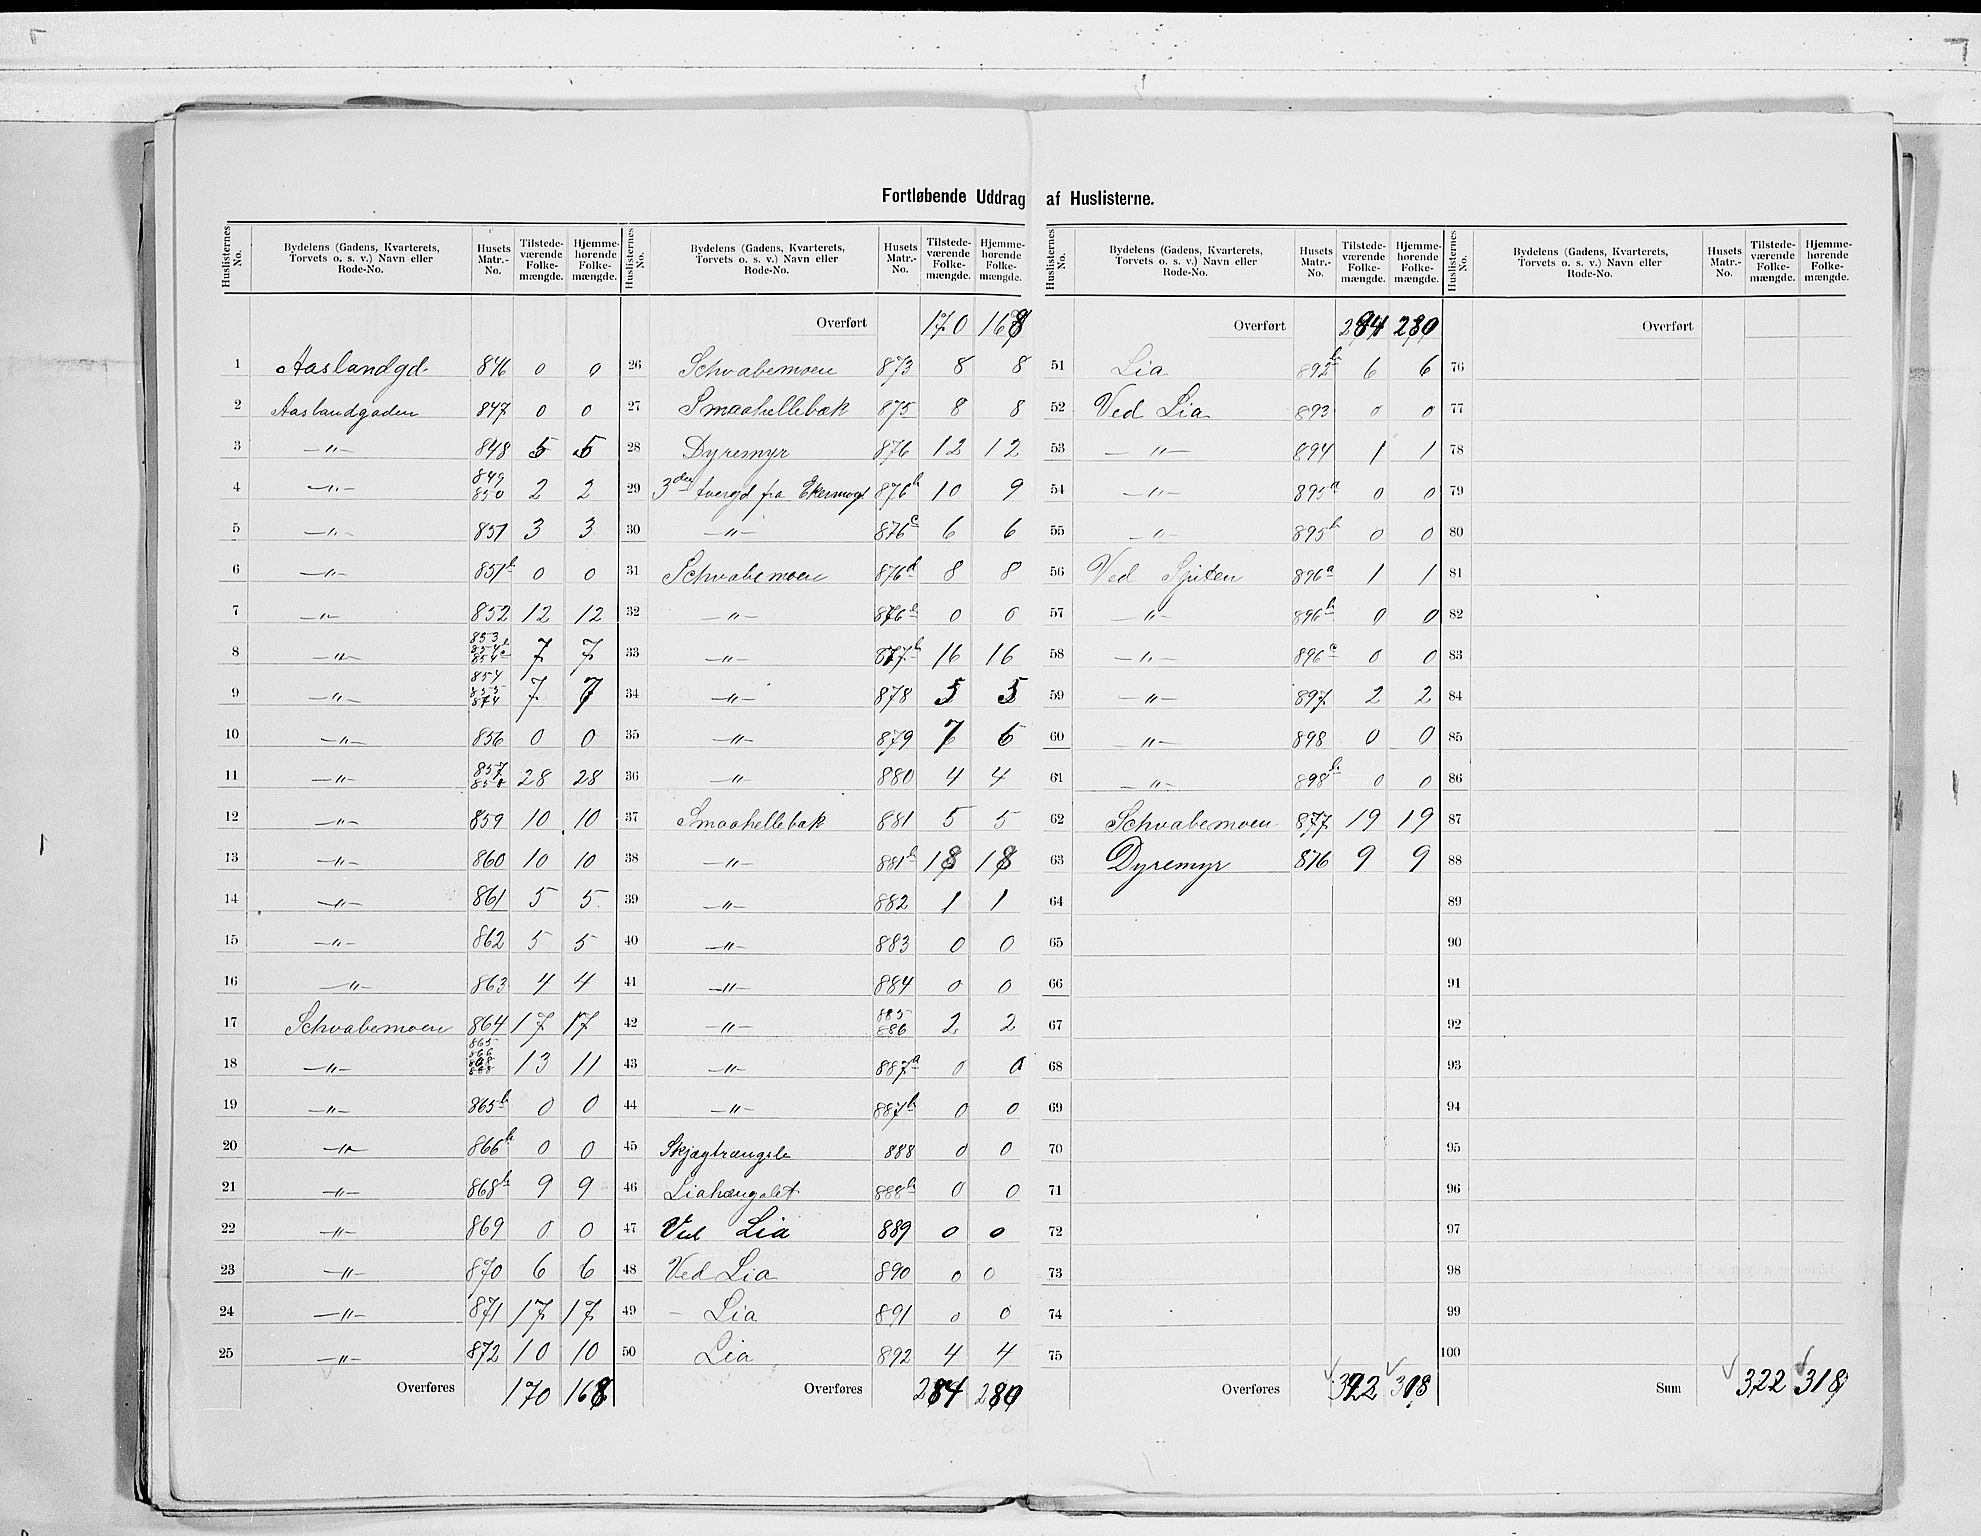 Fortløbende Uddrag af Huslisterne.
Huslisternes No. | Bydelens (Gadens, Kvarterets, Torvets o. s. v.) Navn eller Rode-No. | Husets Matr.-No. | Tilstedeværende Folkemængde. | Hjemmehørende Folkemængde.
1 Aaslandgd. 846 0 0
2 Aaslandgaden 847 0 0
3 —"— 848 5 5
4 —"— 849 850 2 2
5 —"— 851 3 3
6 —"— 851b 0 0
7 —"— 852 12 12
8 —"— 853 854b 854c 7 7
9 —"— 854 855 874 7 7
10 —"— 856 0 0
11 —"— 857 858 28 28
12 —"— 859 10 10
13 —"— 860 10 10
14 —"— 861 5 5
15 —"— 862 5 5
16 —"— 863 4 4
17 Schvabemoen 864 17 17
18 —"— 865 866 868 13 11
19 —"— 865b 0 0
20 —"— 866b 0 0
21 —"— 868b 9 9
22 —"— 869 0 0
23 —"— 870 6 6
24 —"— 871 17 17
25 —"— 872 10 10
Overføres 170 168
Huslisternes No. | Bydelens (Gadens, Kvarterets, Torvets o. s. v.) Navn eller Rode-No. | Husets Matr.-No. | Tilstedeværende Folkemængde. | Hjemmehørende Folkemængde.
Overført 170 168
26 Schvabemoen 873 8 8
27 Smaahellebæk 875 8 8
28 Dyremyr 876 12 12
29 3die tvergd fra Ekermogt 876b 10 9
30 —"— 876c 6 6
31 Schvabemoen 876d 8 8
32 —"— 876e 0 0
33 —"— 877b 16 16
34 —"— 878 5 5
35 —"— 879 7 6
36 —"— 880 4 4
37 Smaahellebæk 881 5 5
38 —"— 881b 18 18
39 —"— 882 1 1
40 —"— 883 0 0
41 —"— 884 0 0
42 —"— 885 886 2 2
43 —"— 887a 0 0
44 —"— 887b 0 0
45 888 0 0
46 888b 0 0
47 Ved Lia 889 0 0
48 Ved Lia 890 0 0
49 – Lia 891 0 0
50 Lia 892 4 4
Overføres 284 280
Huslisternes No. | Bydelens (Gadens, Kvarterets, Torvets o. s. v.) Navn eller Rode-No. | Husets Matr.-No. | Tilstedeværende Folkemængde. | Hjemmehørende Folkemængde.
Overført 284 280
51 Lia 892b 6 6
52 Ved Lia 893 0 0
53 —"— 894 1 1
54 —"— 895a 0 0
55 —"— 895b 0 0
56 Ved Spiten 896a 1 1
57 —"— 896b 0 0
58 —"— 896c 0 0
59 —"— 897 2 2
60 —"— 898 0 0
61 —"— 898b 0 0
62 Schvabemoen 877 19 19
63 Dyremyr 876 9 9
64
65
66
67
68
69
70
71
72
73
74
75
Overføres 322 318
Huslisternes No. | Bydelens (Gadens, Kvarterets, Torvets o. s. v.) Navn eller Rode-No. | Husets Matr.-No. | Tilstedeværende Folkemængde. | Hjemmehørende Folkemængde.
Overført
76
77
78
79
80
81
82
83
84
85
86
87
88
89
90
91
92
93
94
95
96
97
98
99
100
Sum 322 318